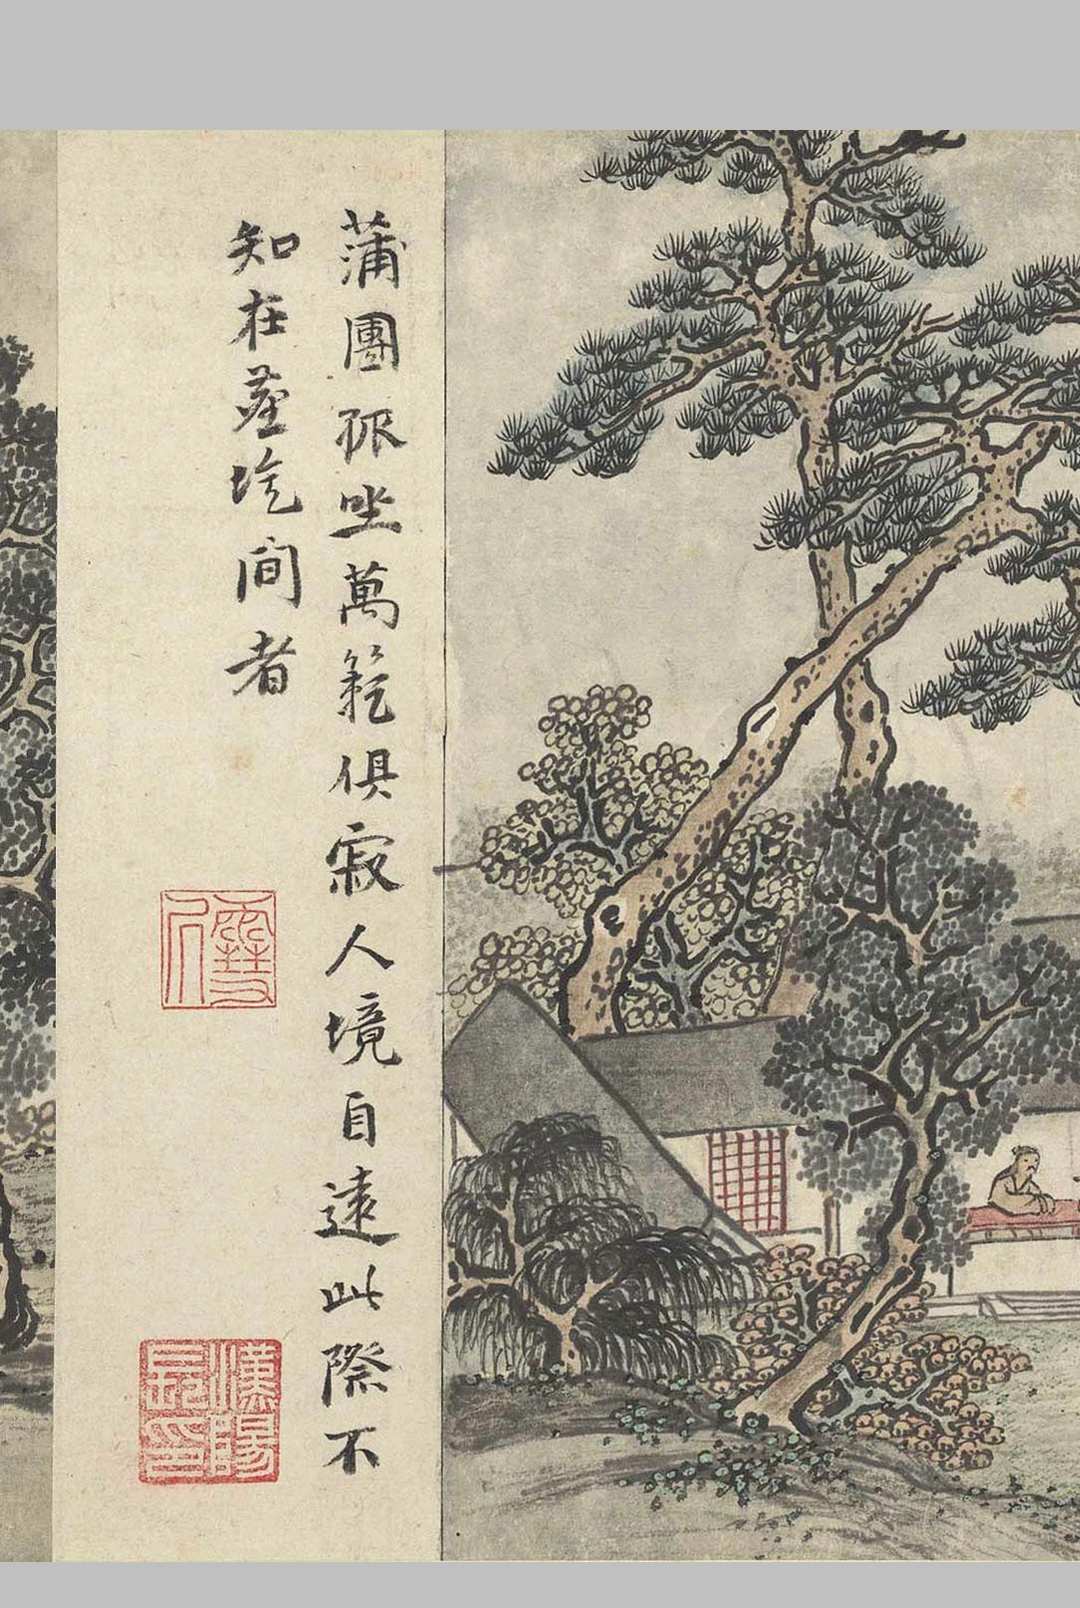 蒲團孤坐萬籟俱寂人境自遠此際不
知在塵埃間者
漢陽